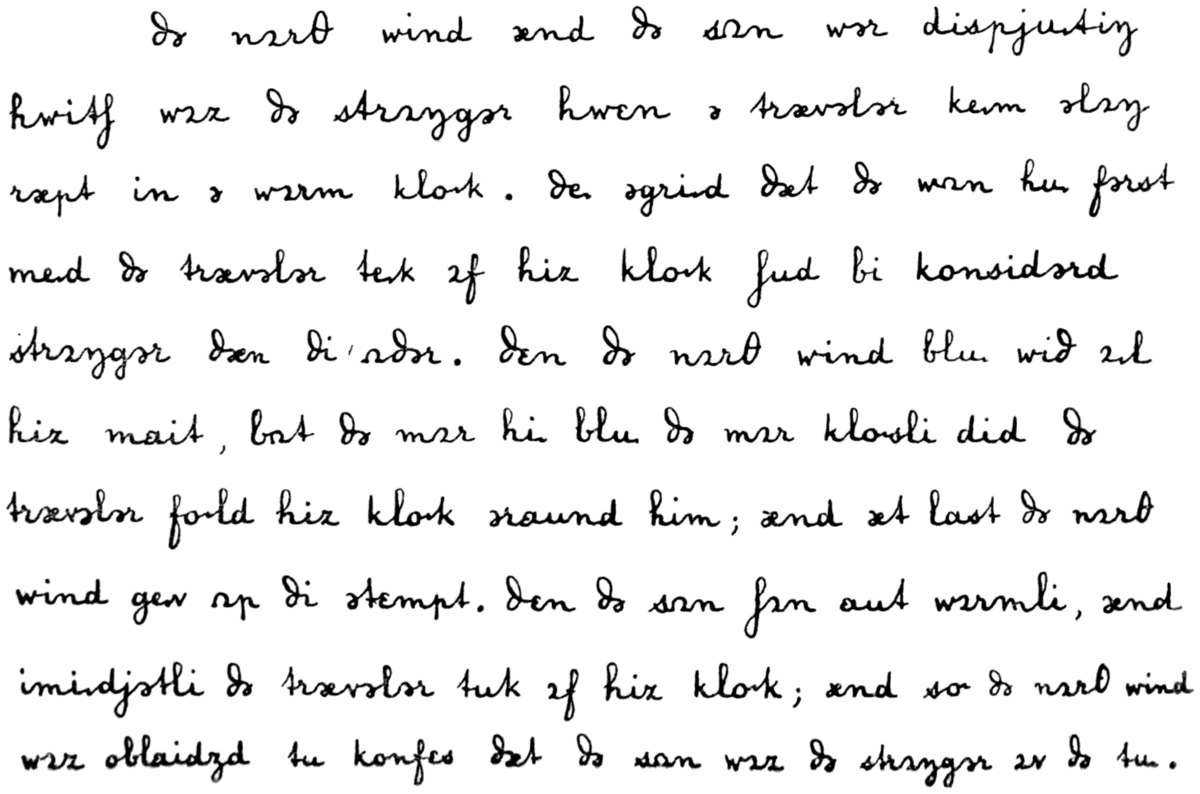 ðə nɔrθ wind ænd ðə sʌn wər dispjuˑtiŋ
hwitʃ wɔz ðə strɔŋgər hwɛn ə trævələr keˑm əlɔŋ
ræpt in ə wɔrm kloˑk. ðeˑ əgriˑd ðæt ðə wʌn huˑ fərst
meˑd ðə trævələr teˑk ɔf hiz kloˑk ʃud bi konsidərd
strɔŋgər ðæn ði ˈʌðər. ðɛn ðə nɔrθ wind bluˑ wið ɔˑl
hiz mait, bʌt ðə mɔr hiˑ bluˑ ðə mɔr kloˑsli did ðə
trævələr foˑld hiz kloˑk əraund him; ænd æt last ðə nɔrθ
wind geˑv ʌp ði ətempt. ðɛn ðə sʌn ʃɔn aut wɔrmli, ænd
imiˑdjətli ðə trævələr tuk ɔf hiz kloˑk; ænd soˑ ðə nɔrθ wind
wɔz oblaidʒd tu konfes ðæt ðə sʌn wɔz ðə strɔŋgər ɔv ðə tuˑ.